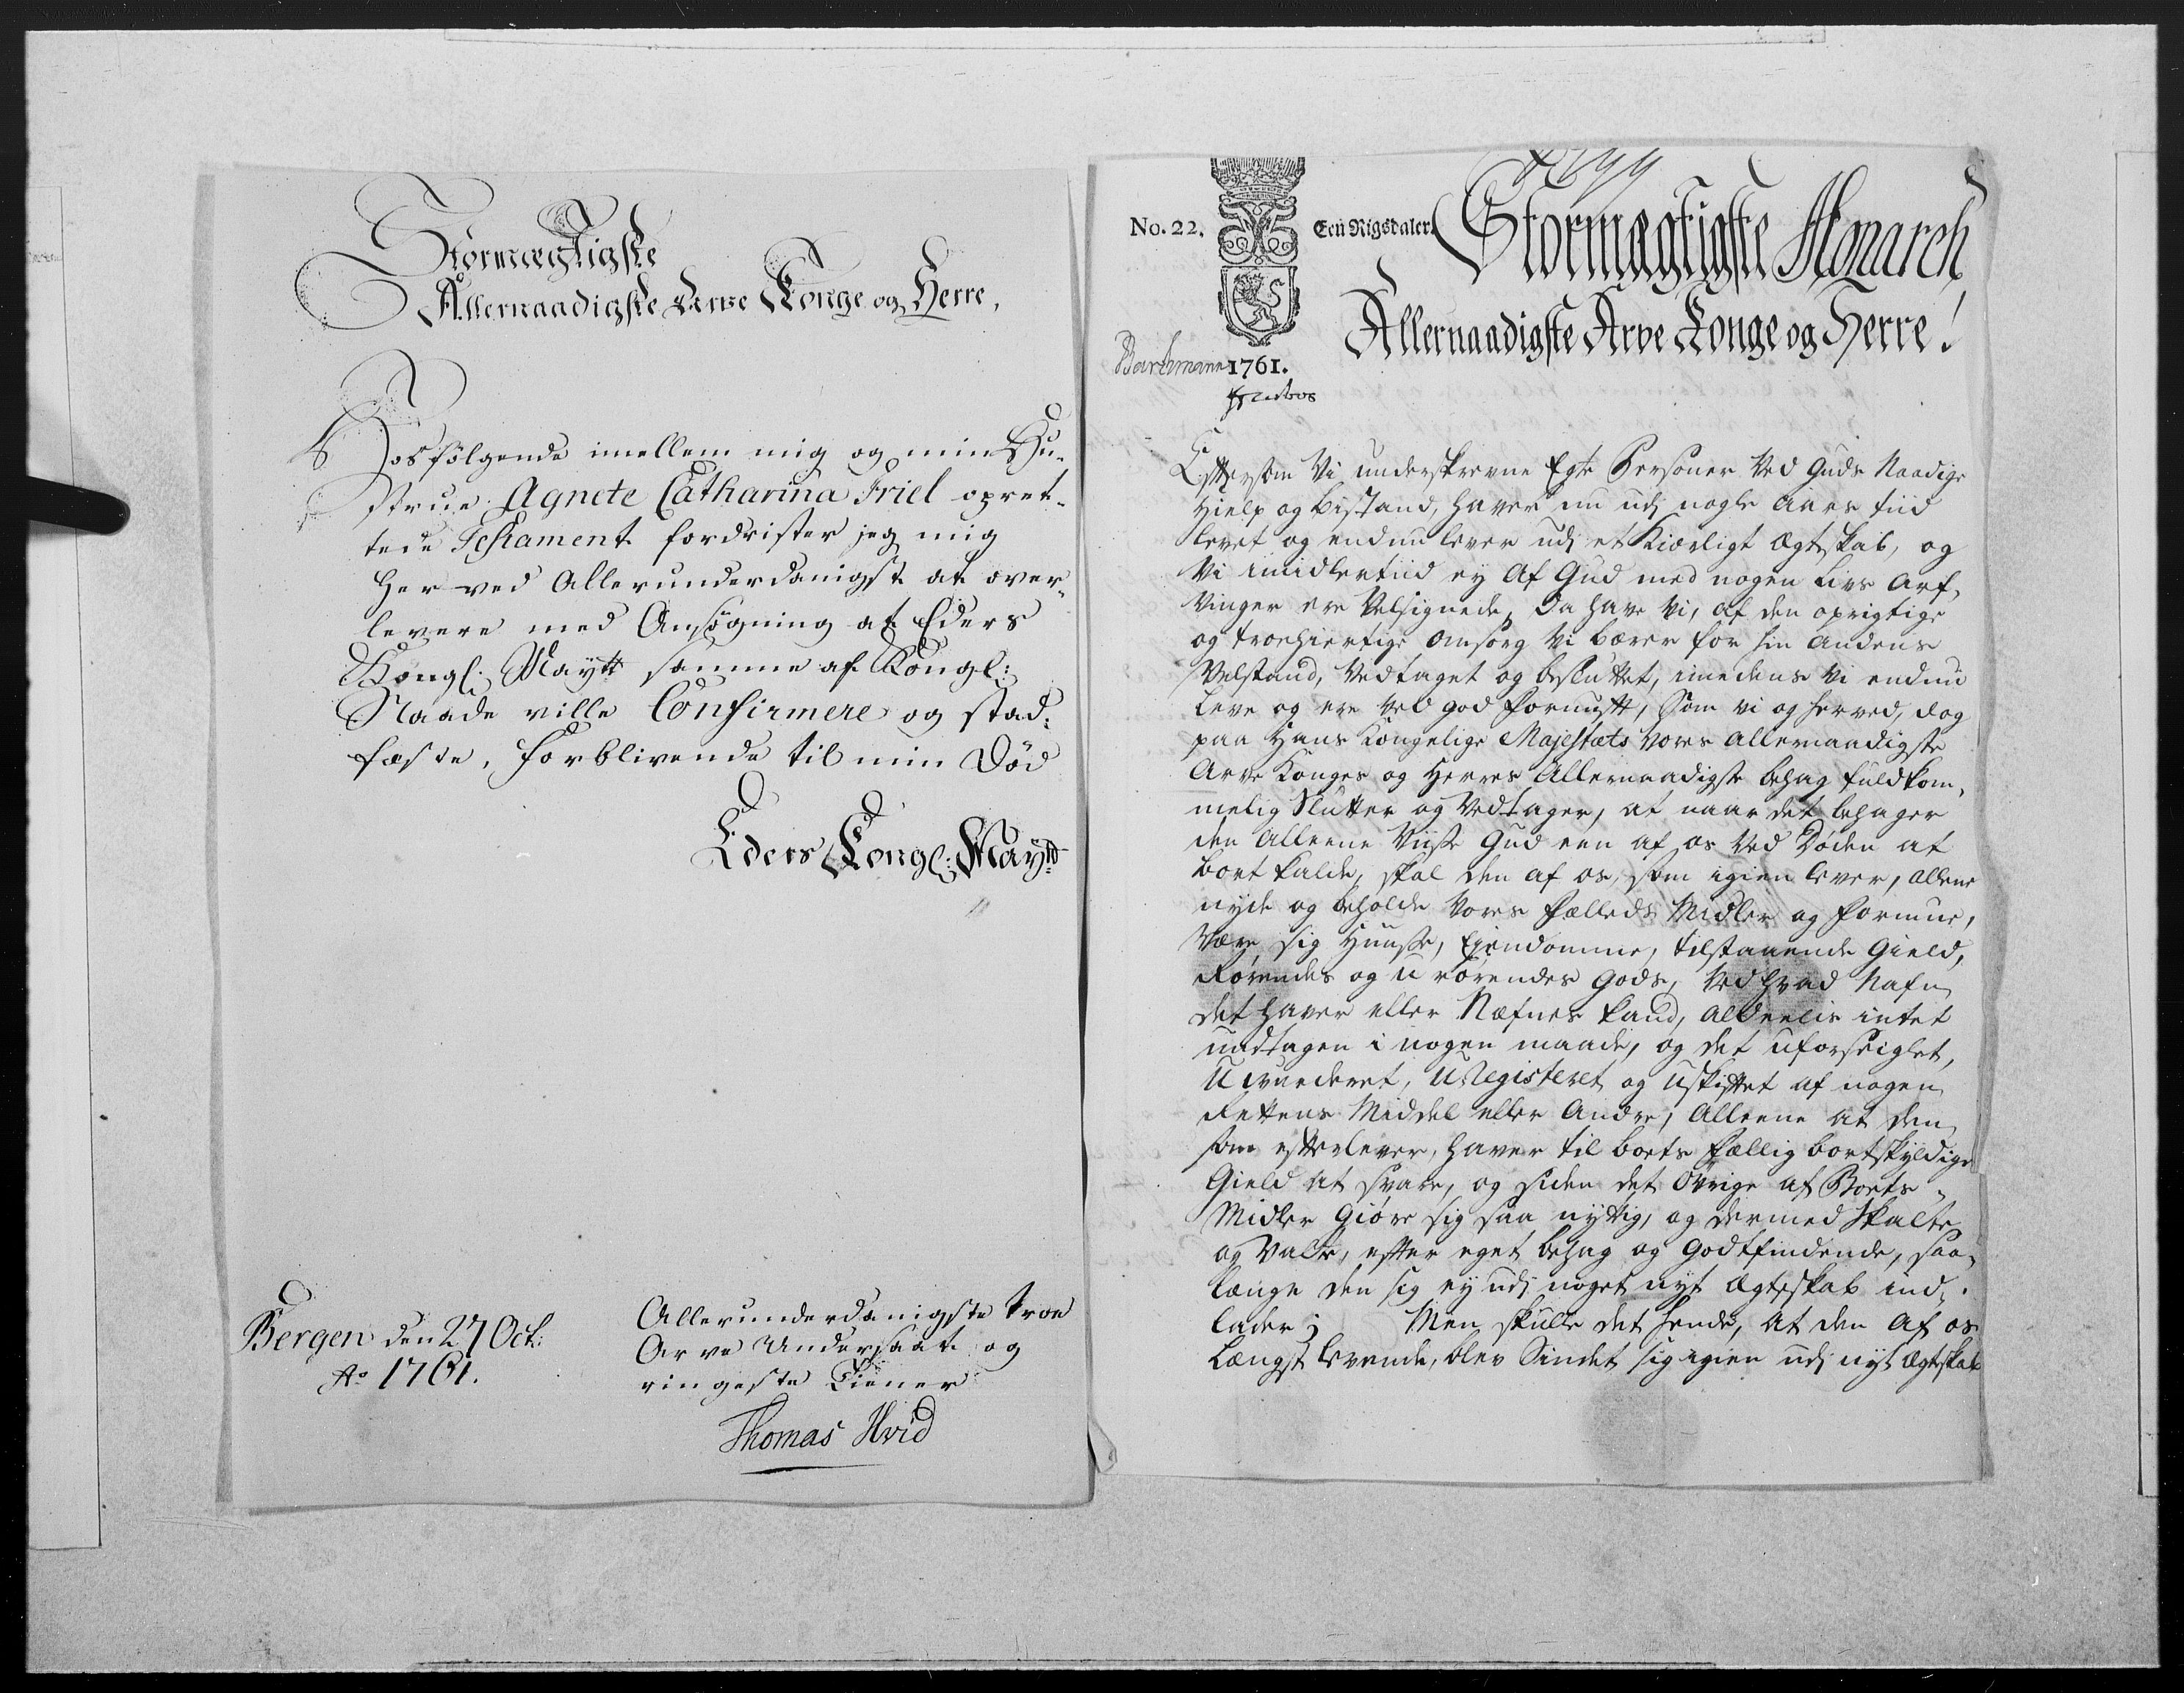 Stormægtigste
Allernaadigste Arve Konge og Herre,
Hosfølgende imellem mig og min Hu-
strue Agnete Catharina Friel opret-
tede Testament fordrister jeg mig
her ved Allerunderdanigst at over-
levere med Ansøgning at Eders
Kongl: Maytt samme af Kongl:
Naade ville Confirmere og stad-
fæste, forblivende til min Død
Eders Kongl: Maytts
Bergen den 27 Oct:
Ao 1761.
Allerunderdanigste troe
Arve Undersaat og
ringeste Tiener
Thomas Hvid
No. 22. Een Rigsdaler.
1761.
Stormægtigste Monarch
Allernaadigste Arve Konge og Herre!
Eftersom Vi underskrevne Egte Personer Ved Guds Naadige
Hielp og bistand, haver nu udj nogle Aars tiid
levet og endnu lever udj et Kiærligt Ægteskab, og
Vi imidlertiid ey Af Gud med nogen Livs Arf-
vinger ere Velsignede, Da have Vi, af den oprigtige
og troehiertige Omsorg Vi bærer for hin Andens
Velstand, Vedtaget og besluttet, imedens Vi endnu
Leve og ere ved god fornuft, Som vi og herved, dog
paa Hans Kongelige Majestæts Vores allernaadigste
Arve Konges og Herres Allernaadigste behag fuldkom-
melig Slutter og Vedtager, at naar det behager
den Alleene Viise Gud een af os Ved Døden at
bort kalde, skal den af os, som igien lever, allene
nyde og beholde Vores fælleds Midler og formue,
Være sig Huuse, Eiendomme, tilstaaende Gield,
Rørendes og U rørendes Gods, Ved hvad Nafn
det haver eller Næfnes kand, aldeelis intet
undtagen i nogen maade, og det uforseiglet,
Uvurderet, URegisteret og Uskiftet af nogen
Rettens Middel eller Andre, Alleene at den
som efterlever, haver til boets fællig bortskyldige
Gield at svare, og siden det Øvrige af Boets
Midler Giøre sig saa nyttig, og dermed skalte
og Valte, efter eget behag og Godtfindende, saa-
længe den sig ey udj noget nyt Ægteskab ind-
lader; Men skulle det hende, at den Af os
Længst levende, blev Sindet sig igien udj nyt Ægteskab